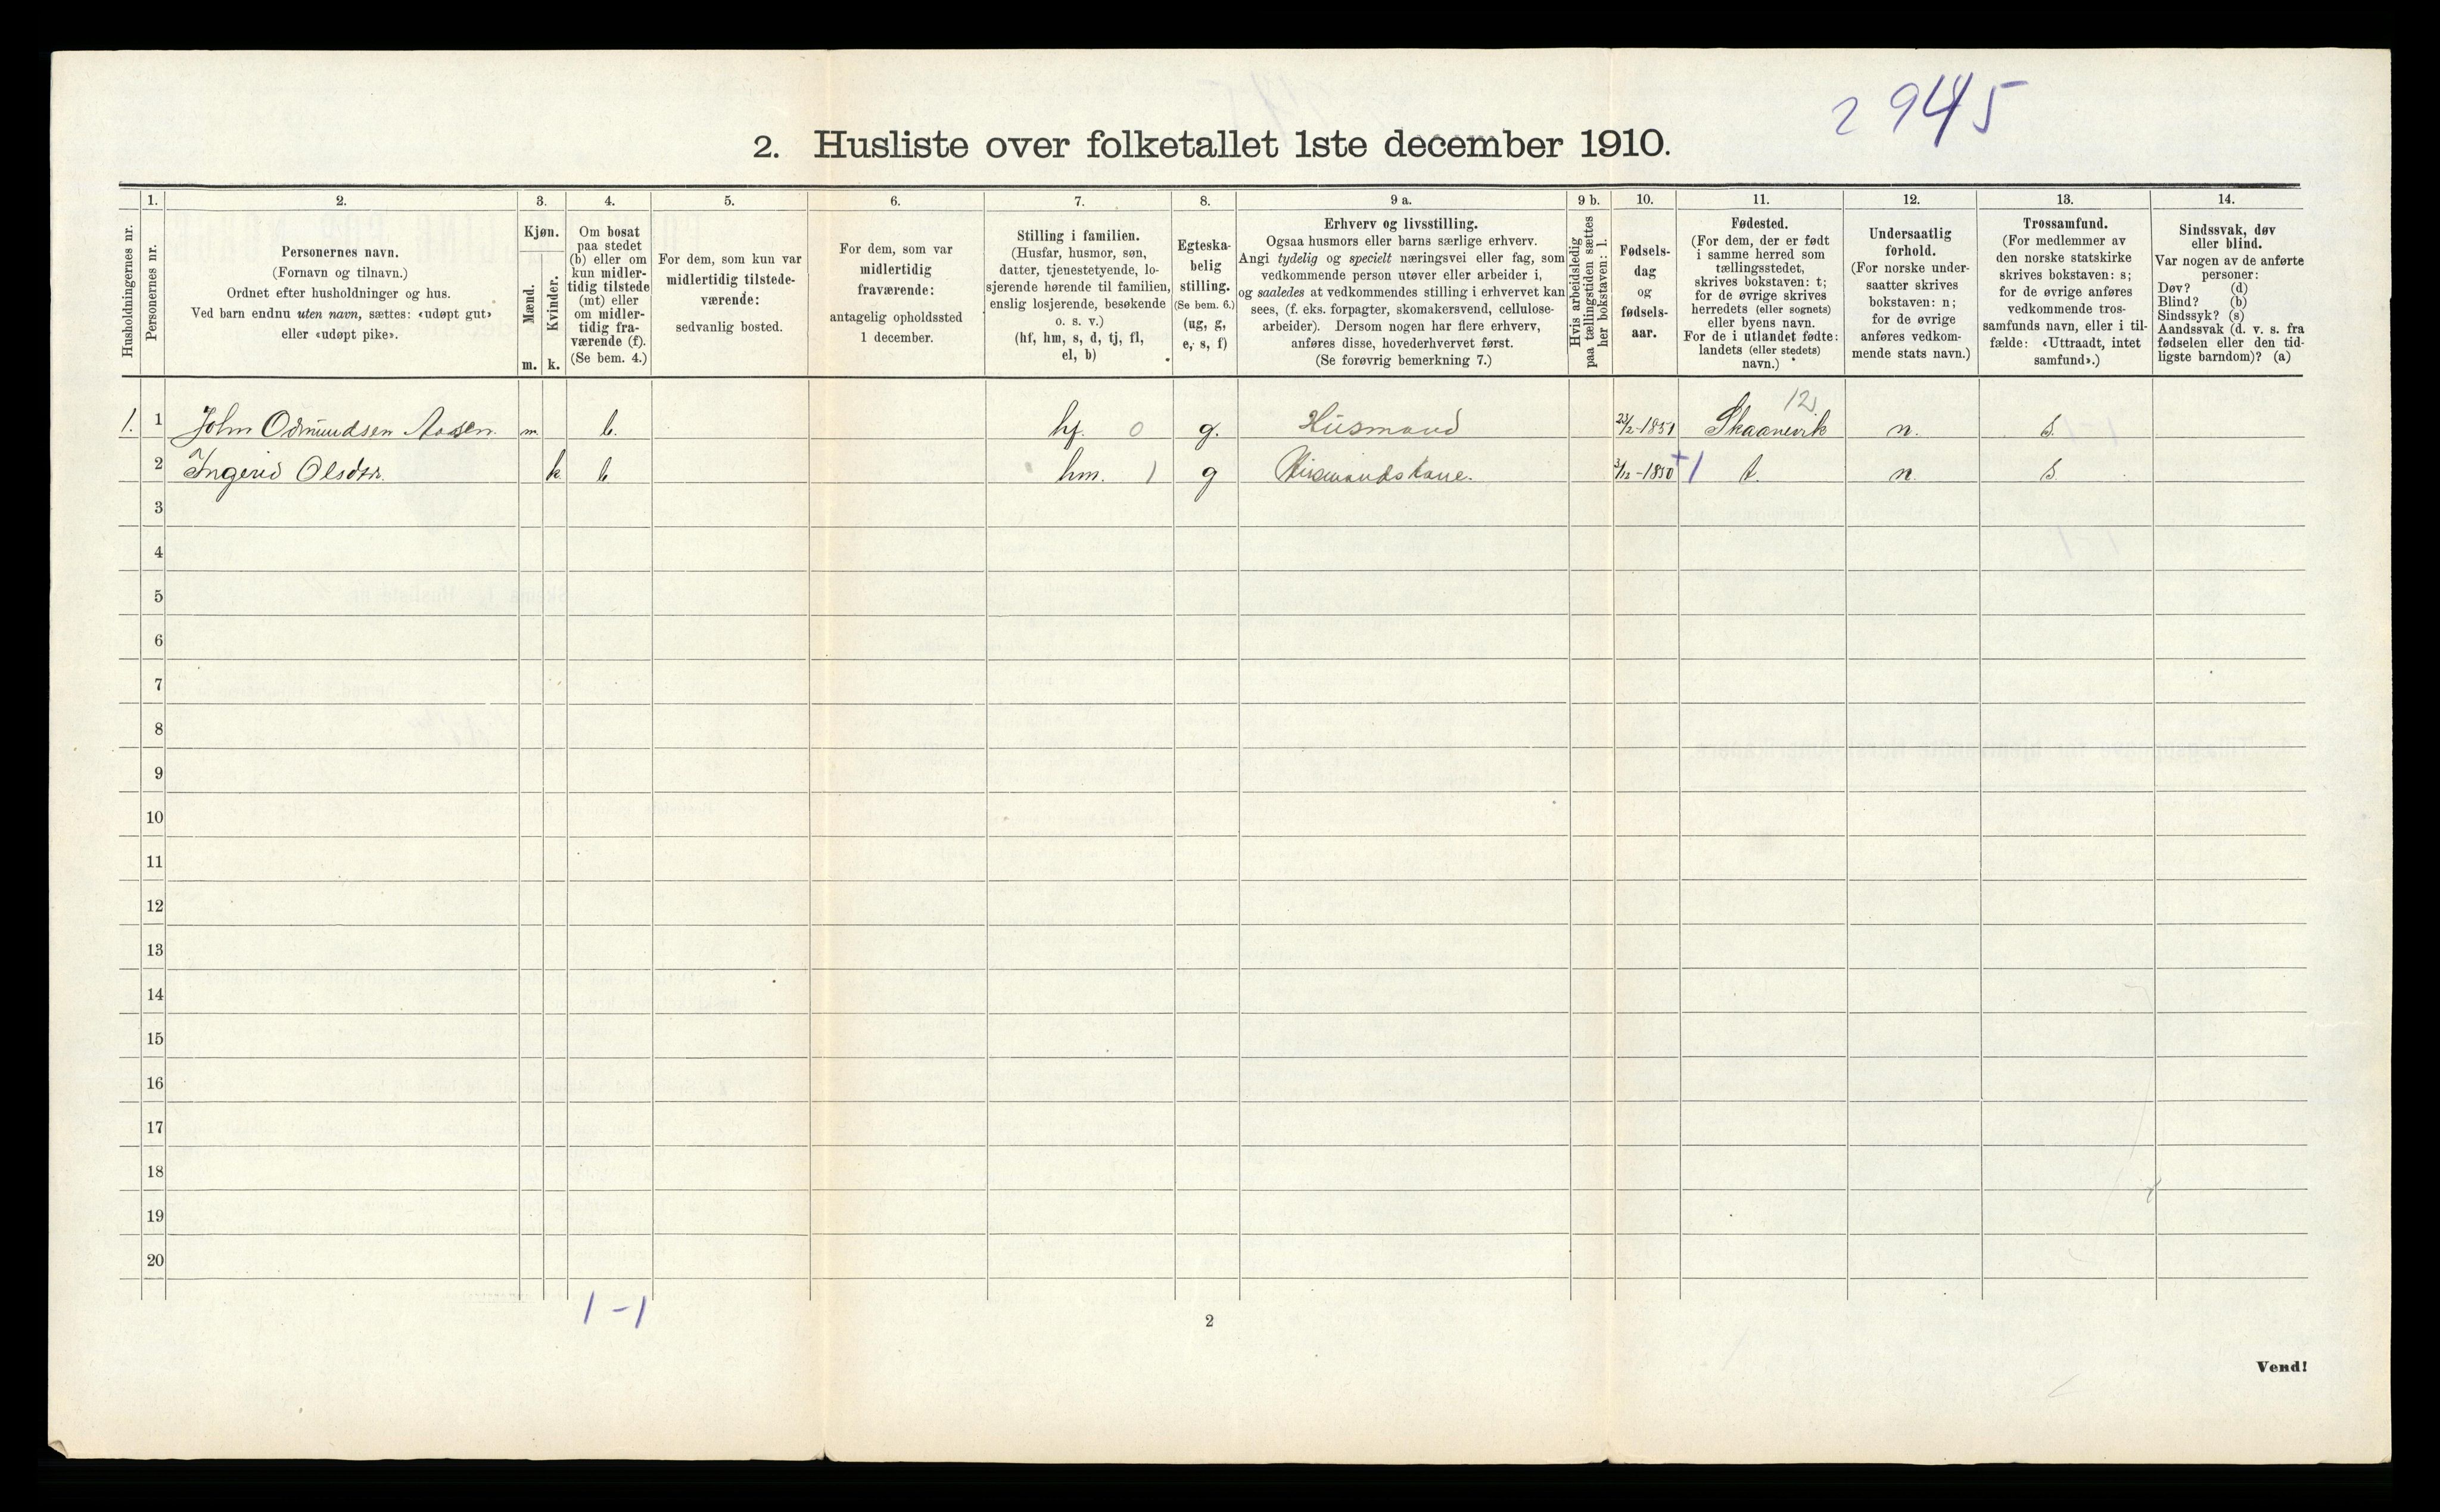 2945
2. Husliste over folketallet 1ste december 1910.
Husholdningernes nr.
1.
Personernes nr.
2.
Personernes navn.
(Fornavn og tilnavn.)
Ordnet efter husholdninger og hus.
Ved barn endnu uten navn, sættes: «udøpt gut»
eller «udøpt pike».
3.
Kjøn.
Mænd.
Kvinder.
m. k.
4.
Om bosat
paa stedet
(b) eller om
kun midler-
tidig tilstede
(mt) eller
om midler-
tidig fra-
værende (f).
(Se bem. 4.)
5.
For dem, som kun var
midlertidig tilstede-
værende:
sedvanlig bosted.
6.
For dem, som var
midlertidig
fraværende:
antagelig opholdssted
1 december.
7.
Stilling i familien.
(Husfar, husmor, søn,
datter, tjenestetyende, lo-
sjerende hørende til familien,
enslig losjerende, besøkende
o. s. v.)
(hf, hm, s, d, tj, fl,
el, b)
8.
Egteska-
belig
stilling.
(Se bem. 6.)
(ug, g,
e, s, f)
9 a.
Erhverv og livsstilling.
Ogsaa husmors eller barns særlige erhverv.
Angi tydelig og specielt næringsvei eller fag, som
vedkommende person utøver eller arbeider i,
og saaledes at vedkommendes stilling i erhvervet kan
sees, (f. eks. forpagter, skomakersvend, cellulose-
arbeider). Dersom nogen har flere erhverv,
anføres disse, hovederhvervet først.
(Se forøvrig bemerkning 7.)
9 b.
Hvis arbeidsledig
paa tællingstiden sættes
her bokstaven: l.
10.
Fødsels-
dag
og
fødsels-
aar.
11.
Fødested.
(For dem, der er født
i samme herred som
tællingsstedet,
skrives bokstaven: t;
for de øvrige skrives
herredets (eller sognets)
eller byens navn.
For de i utlandet fødte:
landets (eller stedets)
navn.)
12.
Undersaatlig
forhold.
(For norske under-
saatter skrives
bokstaven: n;
for de øvrige
anføres vedkom-
mende stats navn.)
13.
Trossamfund.
(For medlemmer av
den norske statskirke
skrives bokstaven: s;
for de øvrige anføres
vedkommende tros-
samfunds navn, eller i til-
fælde: «Uttraadt, intet
samfund».)
14.
Sindssvak, døv
eller blind.
Var nogen av de anførte
personer:
Døv? (d)
Blind? (b)
Sindssyk? (s)
Aandssvak (d. v. s. fra
fødselen eller den tid-
ligste barndom)? (a)
12
1. 1 John Odmundsen Aasen. m. b. hf. 0 g. Husmand 23/2-1851 Skaanevik n. s.
2 Ingerid Olsdtr. k b hm. 1 g Husmandskone. 3/12-1850 +1 t. n. s.
3
4
5
6
7
8
9
10
11
12
13
14
15
16
17
18
19
20
1-1
2
Vend!